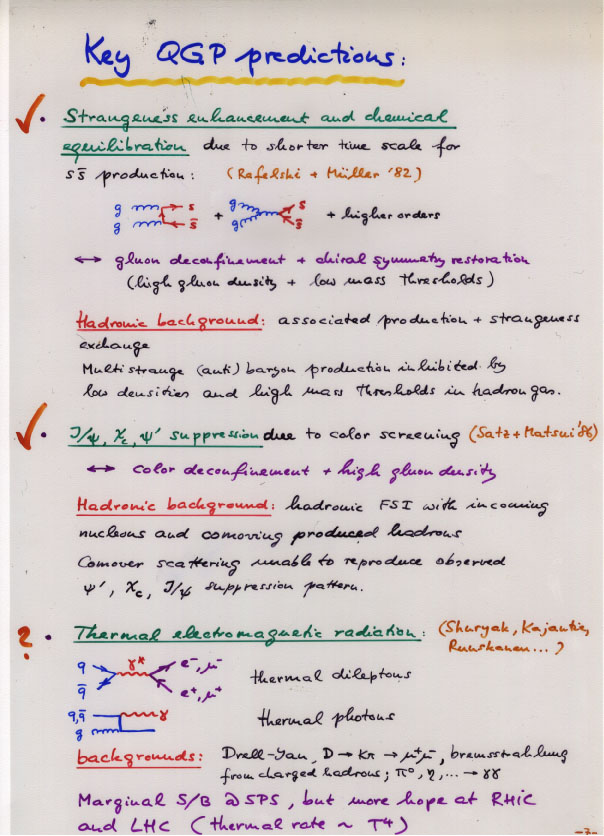 Key QGP predictions:
✓ • Strangeness enhancement and chemical
equilibration due to shorter time scale for
ss̄ production: (Rafelski + Müller '82)
g s g s
+ + higher orders
g s̄ g s̄
↔ gluon deconfinement + chiral symmetry restoration
(high gluon density + low mass thresholds)
Hadronic background: associated production + strangeness
exchange
Multistrange (anti)baryon production inhibited by
low densities and high mass thresholds in hadron gas.
✓ • J/ψ, χc, ψ' suppression due to color screening (Satz + Matsui '86)
↔ color deconfinement + high gluon density
Hadronic background: hadronic FSI with incoming
nucleons and comoving produced hadrons
Comover scattering unable to reproduce observed
ψ', χc, J/ψ suppression pattern.
? • Thermal electromagnetic radiation: (Shuryak, Kajantie,
Ruuskanen...)
q γ* e⁻, μ⁻
thermal dileptons
q̄ e⁺, μ⁺
q,q̄ γ
thermal photons
g
backgrounds: Drell-Yan, D → Kπ → μ⁺μ⁻, bremsstrahlung
from charged hadrons; π⁰, η, ... → γγ
Marginal S/B @ SPS, but more hope at RHIC
and LHC (thermal rate ~ T⁴)
-7-